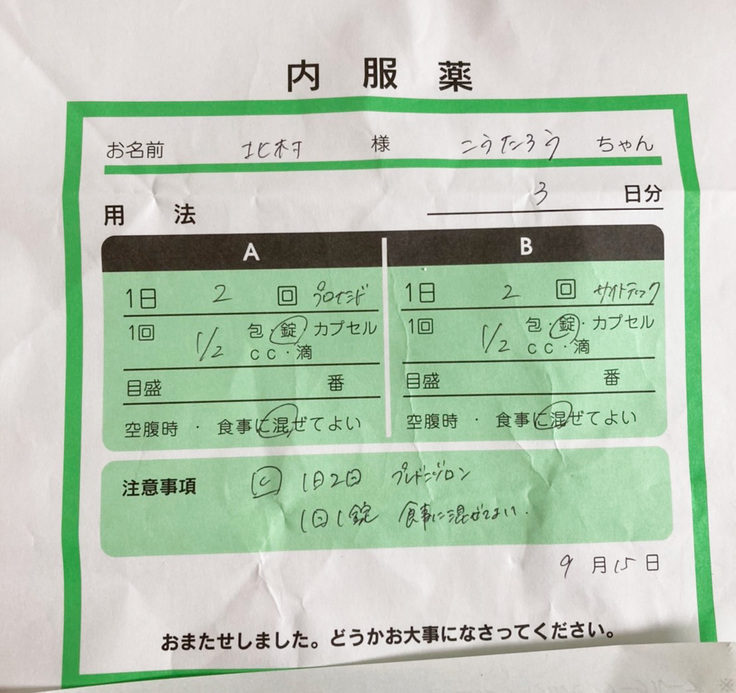 内服薬
お名前 北村 様 こうたろう ちゃん
用法 3 日分
A
1日 2 回 プロインド
1回 1/2 包・錠・カプセル
cc・滴
目盛 番
空腹時・食事に混ぜてよい
B
1日 2 回 サイトテック
1回 1/2 包・錠・カプセル
cc・滴
目盛 番
空腹時・食事に混ぜてよい
注意事項 C 1日2回 プレドニゾロン
1回1錠 食事に混ぜてよい.
9月15日
おまたせしました。どうかお大事になさってください。